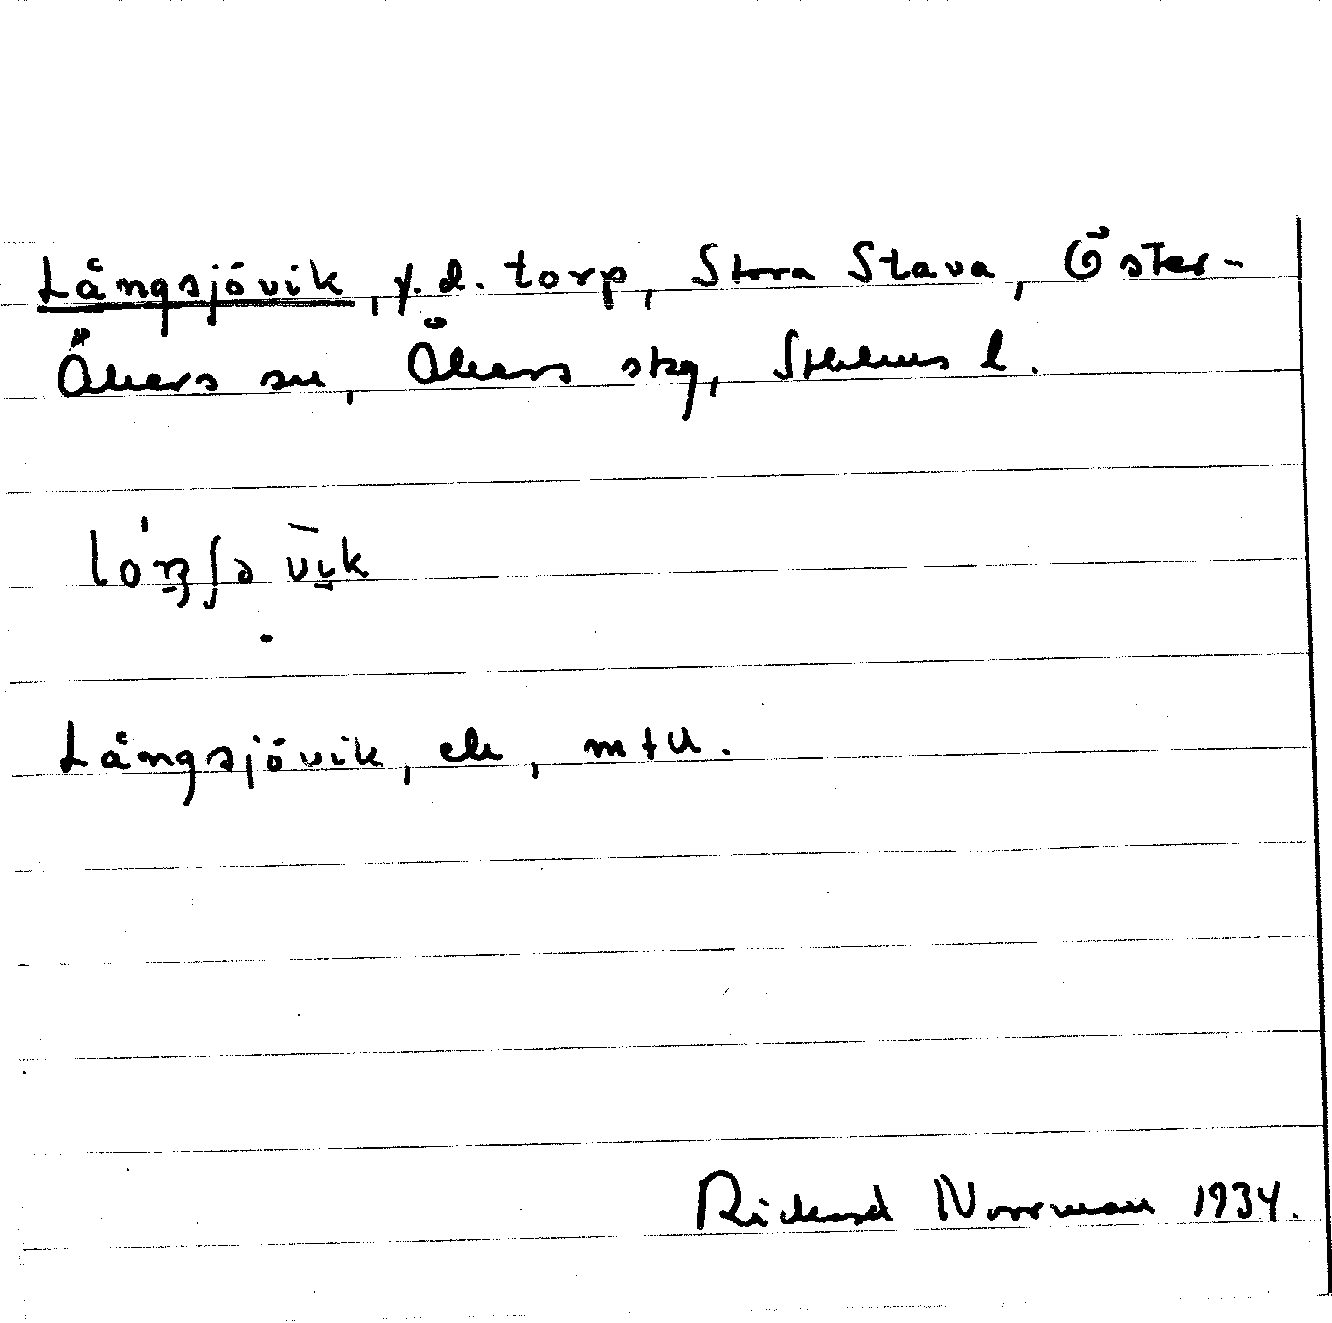 Långsjövik, f.d. torp, Stora Stava, Öster-
Åkers sn, Åkers skg, Sthlms l.
Långsjövik, ek, mtU.
Rickard Norrman 1934.